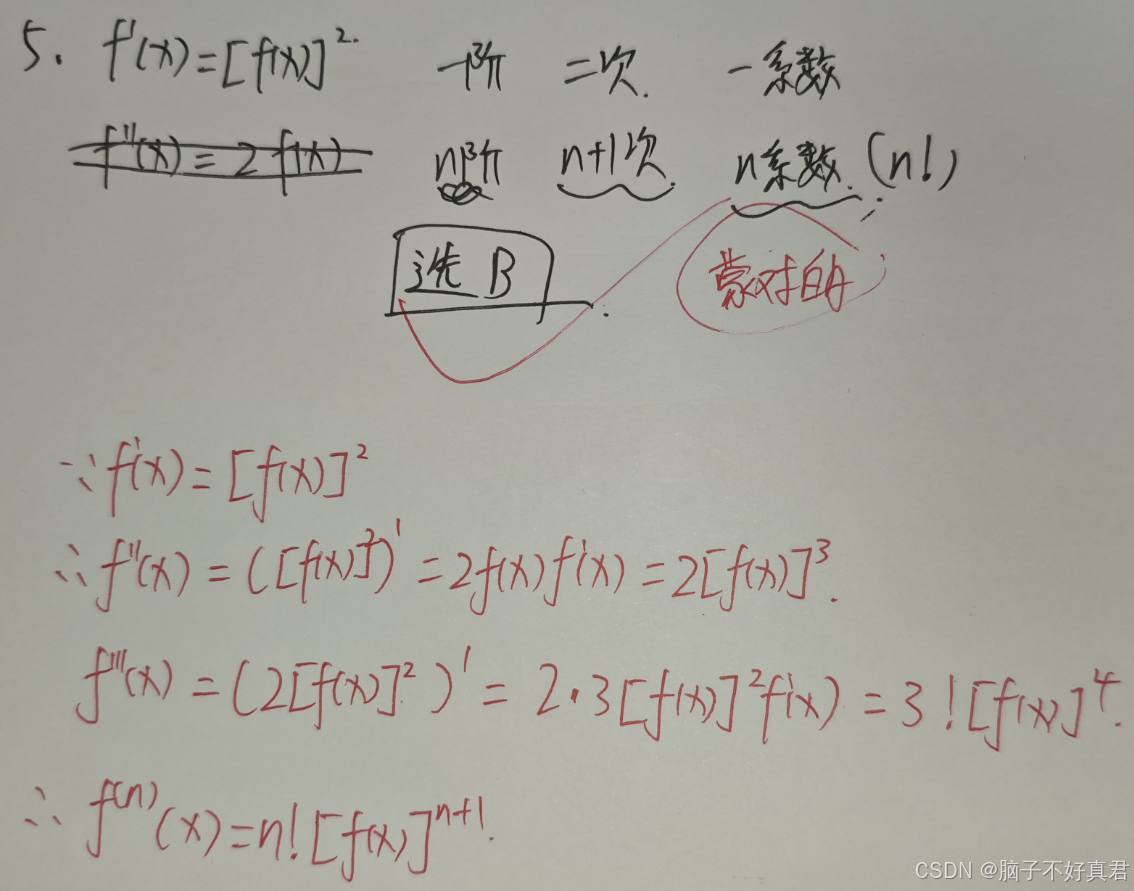 5. f'(x)=[f(x)]². 一阶 二次. 一系数
f''(x)=2 f(x) n阶 n+1次. n系数.(n!)
选 B 蒙对的
∵f'(x)=[f(x)]²
∴f''(x)=([f(x)]²)'=2f(x)f'(x)=2[f(x)]³.
f'''(x)=(2[f(x)]²)'=2·3[f(x)]²f'(x)=3![f(x)]⁴.
∴f⁽ⁿ⁾(x)=n![f(x)]ⁿ⁺¹.
CSDN @脑子不好真君